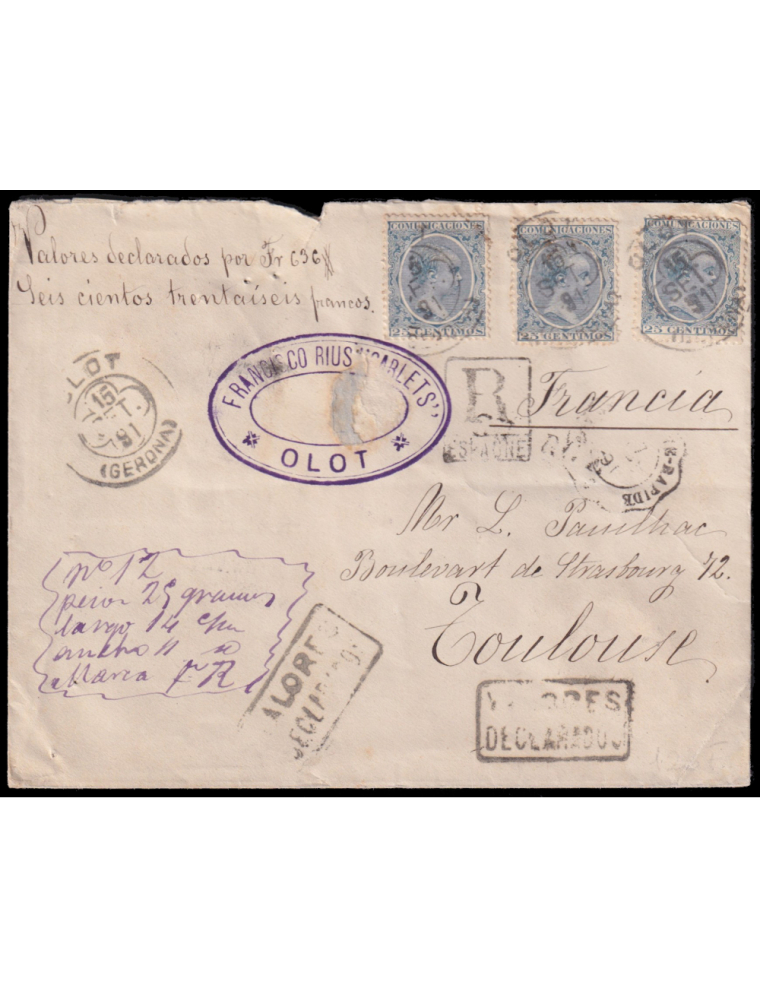 COMUNICACIONES
25 CENTIMOS
COMUNICACIONES
25 CENTIMOS
COMUNICACIONES
25 CENTIMOS
Valores declarados por Fr 636
Seis cientos trentaiseis francos.
OLOT
15
SET.
91
(GERONA)
FRANCISCO RIUS "CARLETS"
OLOT
R
ESPAGNE
Francia
RAPIDE
Mr L. Pauilhac
Boulevart de Strasbourg 42.
Toulouse
nº 12
peso 25 gramos
largo 14 c/m
ancho 11
Marca F R
VALORES
DECLARADOS
VALORES
DECLARADOS